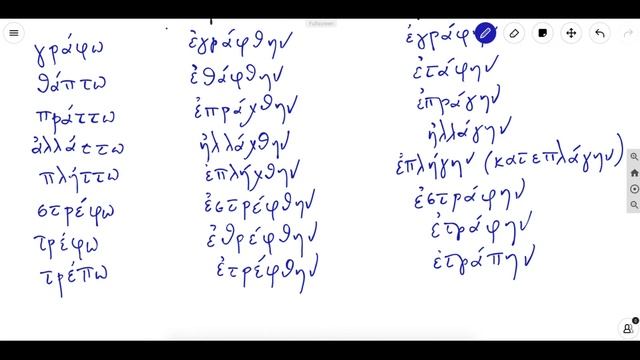 γράφω ἐγράφθην ἐγράφην
θάπτω ἐθάφθην ἐτάφην
πράττω ἐπράχθην ἐπράγην
ἀλλάττω ἠλλάχθην ἠλλάγην
πλήττω ἐπλήχθην ἐπλήγην (κατεπλάγην)
στρέφω ἐστρέφθην ἐστράφην
τρέφω ἐθρέφθην ἐτράφην
τρέπω ἐτρέφθην ἐτράπην